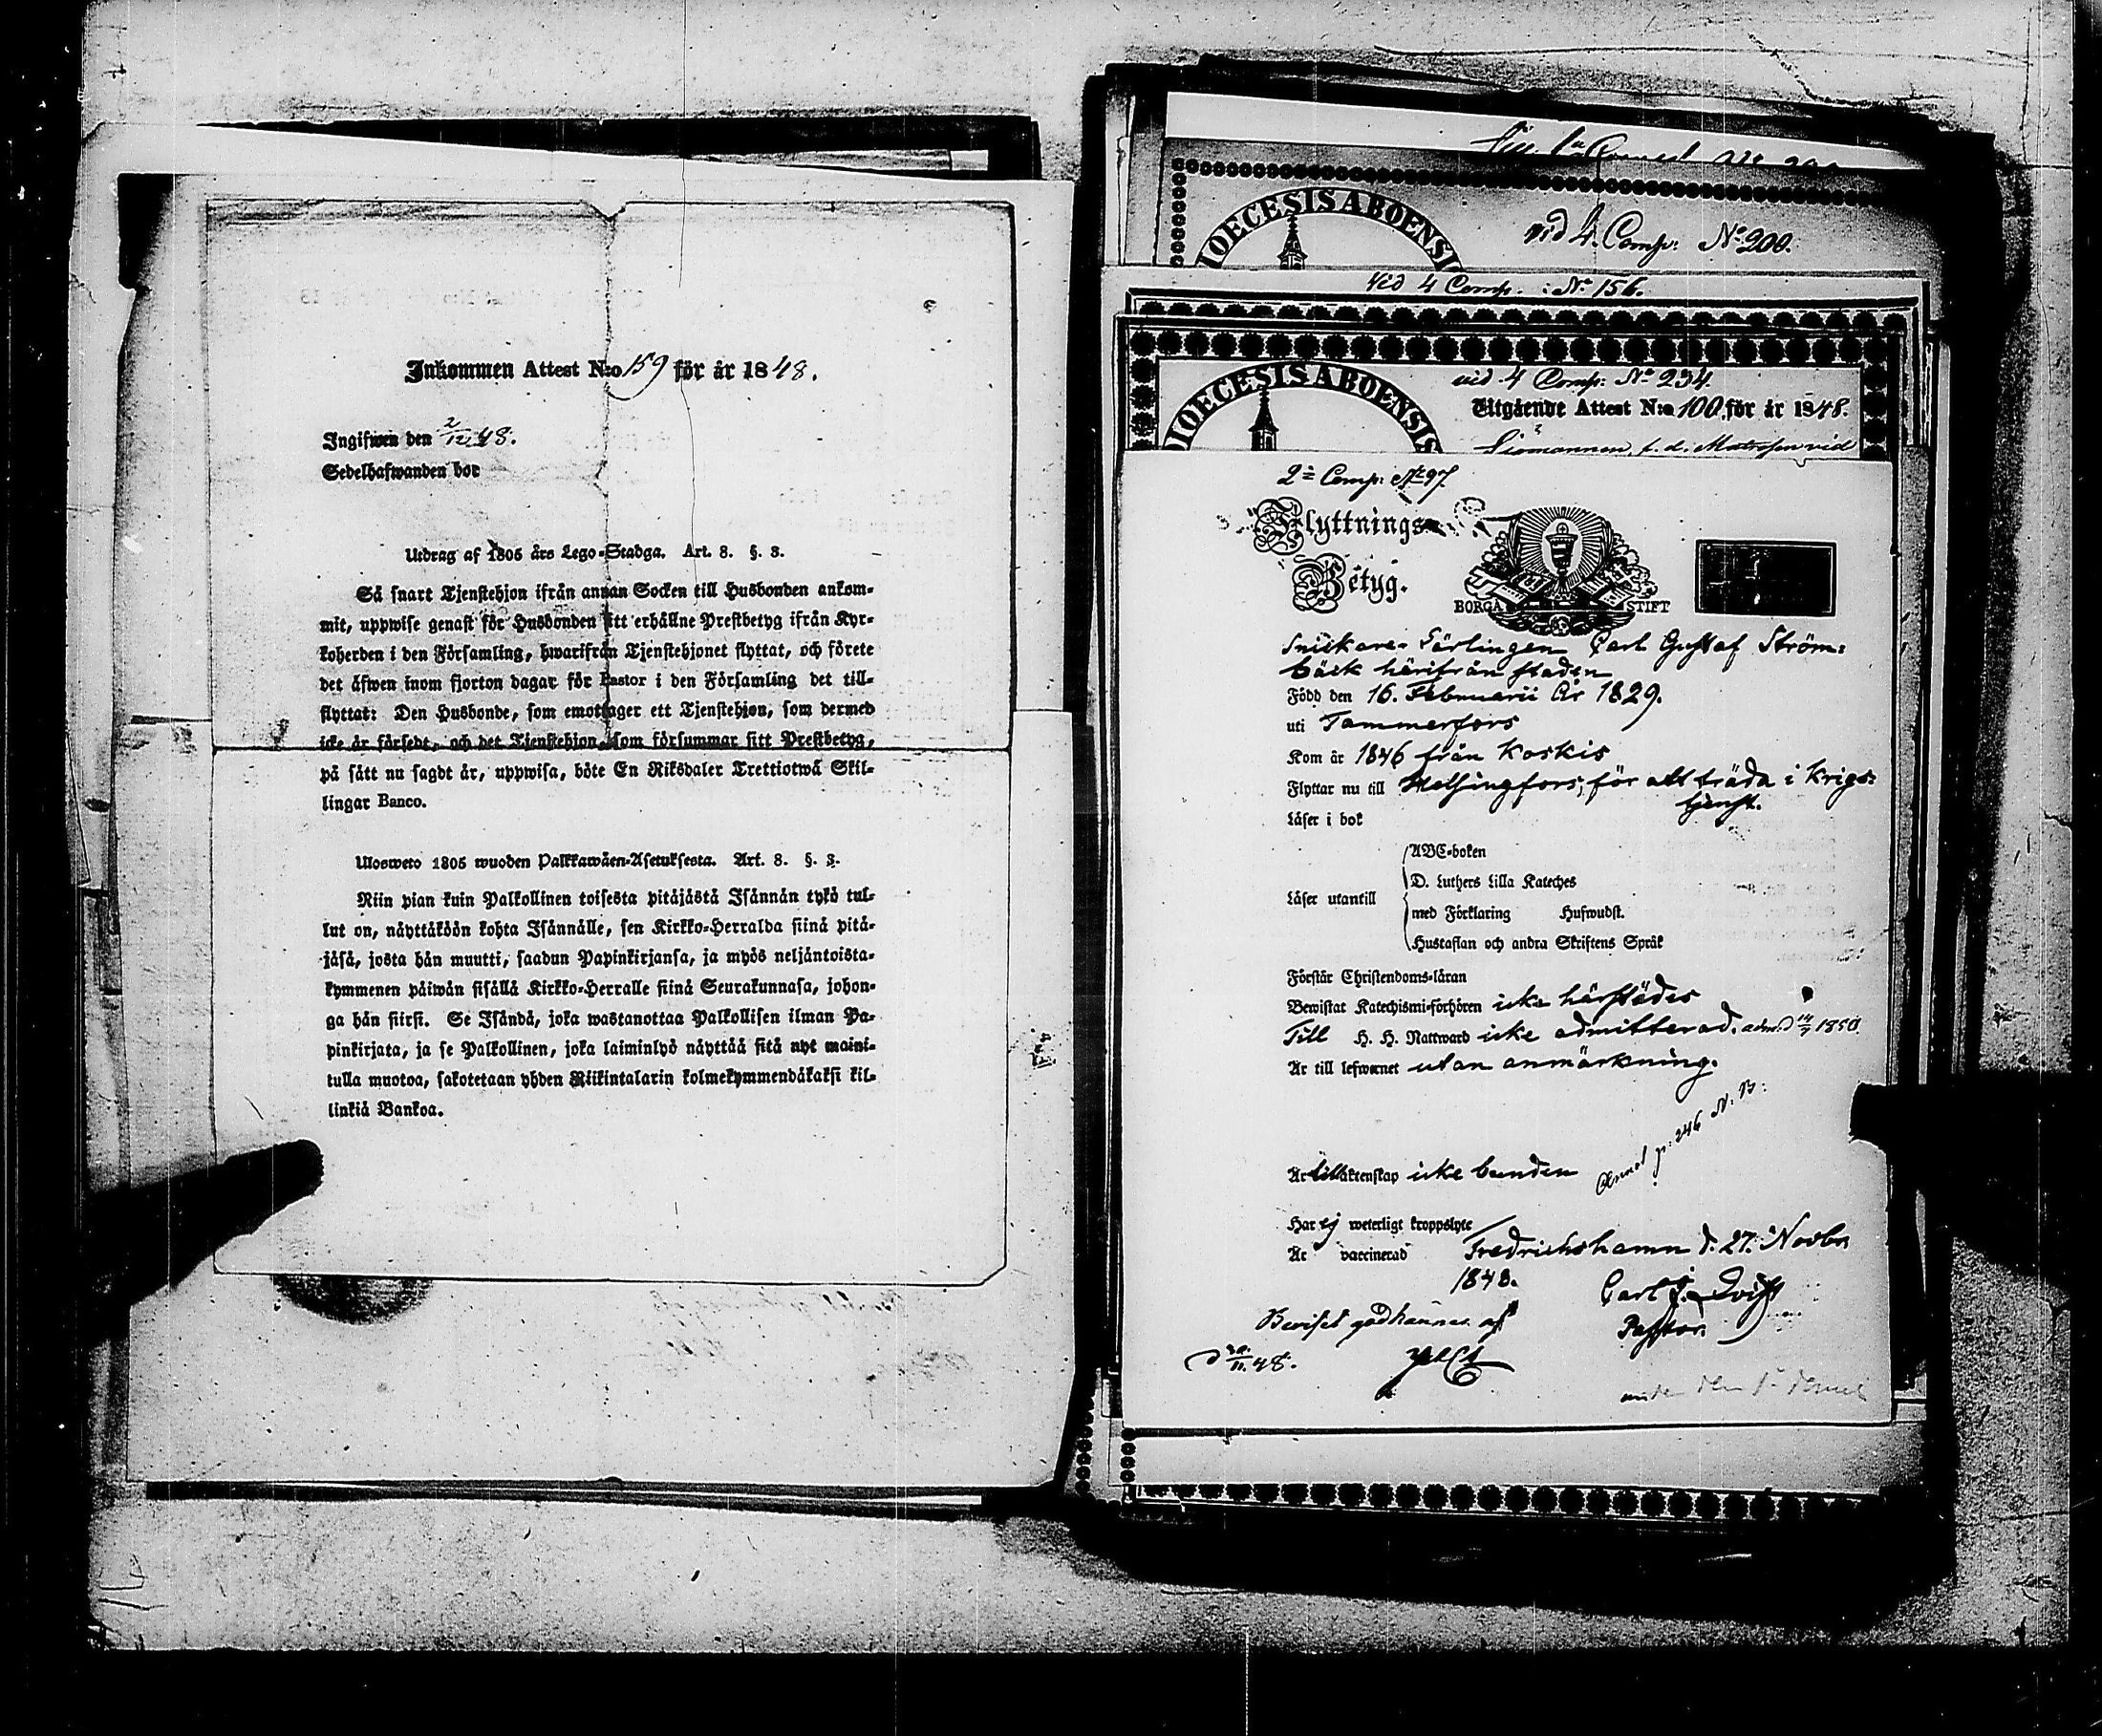 Inkommen Attest N:o 159 för år 1848.
Ingifwen den 2/12 48.
Sedelhafwanden bor
Utdrag af 1805 års Lego-Stadga. Art. 8. §. 3.
Så snart Tjenstehjon ifrån annan Socken till Husbonden ankom-
mit, uppwise genast för Husbonden sitt erhållne Prestbetyg ifrån Kyr-
koherden i den Församling, hwarifrån Tjenstehjonet flyttat, och förete
det äfwen inom fjorton dagar för Pastor i den Församling det till-
flyttat: Den Husbonde, som emottager ett Tjenstehjon, som dermed
icke är försedt, och det Tjenstehjon, som försummar sitt Prestbetyg,
på sätt nu sagdt är, uppwisa, böte En Riksdaler Trettiotwå Skil-
lingar Banco.
Ulosweto 1805 wuoden Palkkawäen-Asetuksesta. Art. 8. §. 3.
Niin pian kuin Palkollinen toisesta pitäjästä Isännän tykö tul-
lut on, näyttäköön kohta Isännälle, sen Kirkko-Herralda siinä pitä-
jäsä, josta hän muutti, saadun Papinkirjansa, ja myös neljäntoista-
kymmenen päiwän sisällä Kirkko-Herralle siinä Seurakunnasa, johon-
ga hän siirsi. Se Isändä, joka wastanottaa Palkollisen ilman Pa-
pinkirjata, ja se Palkollinen, joka laiminlyö näyttää sitä nyt maini-
tulla muotoa, sakotetaan yhden Riikintalarin kolmekymmendäkaksi kil-
linkiä Bankoa.
DIOECESIS ABOENSIS
vid 4. Comp: No 200.
Vid 4 Comp. : No 156.
DIOECESIS ABOENSIS
vid 4 Comp: No 234.
Utgående Attest N:o 100 för år 1848.
Sjömannen f. d. Matrosen vid
2a Comp: No 97
Flyttnings-
Betyg.
BORGÅ STIFT
Snickare-Lärlingen Carl Gustaf Ström-
bäck härifrån staden
Född den 16. Februarii År 1829.
uti Tammerfors
Kom år 1846 från Koskis
Flyttar nu till Helsingfors, för att träda i Krigs-
tjenst.
Läser i bok
ABC-boken
D. Luthers Lilla Kateches
Läser utantill
med Förklaring Hufwudst.
Hustaflan och andra Skriftens Språk
Förstår Christendoms-läran
Bewistat Katechismi-förhören icke härstädes
Till H. H. Nattward icke admitterad. adm. d 14/7 1850
Är till lefwernet utan anmärkning.
p: 246 N. B:
Är till äktenskap icke bunden
Har ej weterligt kroppslyte
Är vaccinerad Fredrichshamn d. 27. Novbr
1848.
Carl
Pastor.
Beviset godkännes af
d 30/11 48.